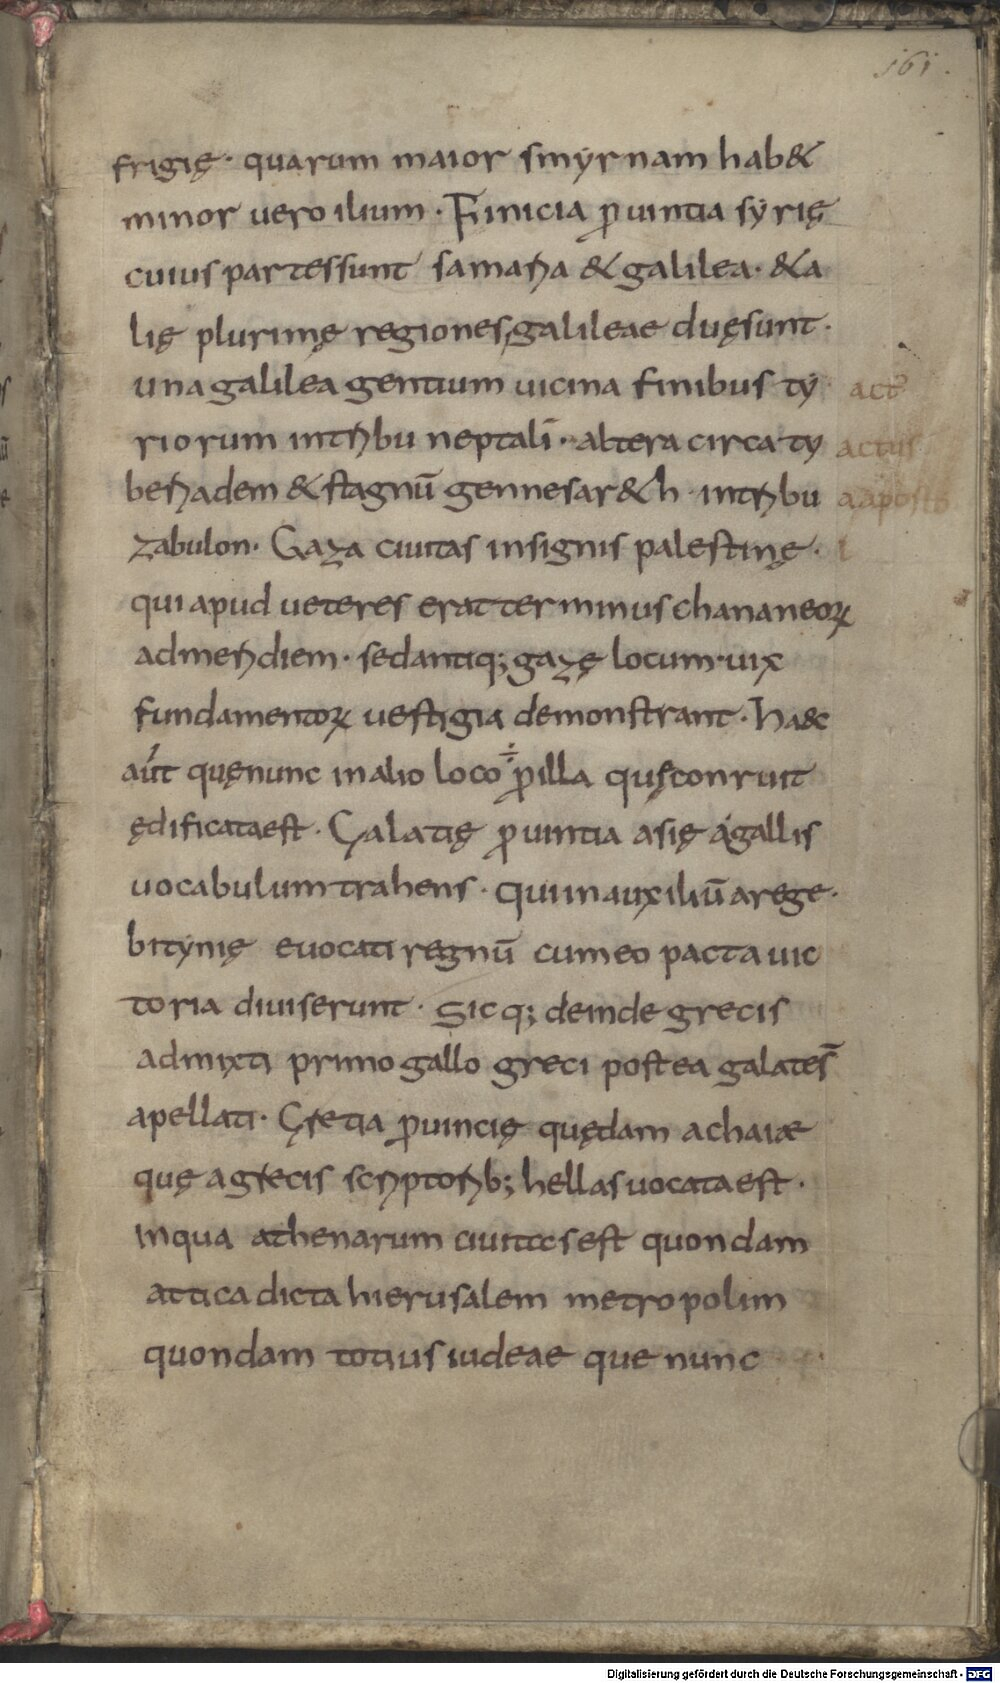 161.
frigię· quarum maior smẏrnam hab&
minor uero ilium· Finicia ꝓuintia sẏrię
cuius partessunt samaria & galilea· & a
lię plurimę regiones, galileae duęsunt·
una galilea gentium uicina finibus tẏ
act᾿
riorum intribu neptalī· altera circa ty
actus
beriadem & stagnū gennesar&h· intribu
zabulon· Gaza ciuitas insignis palestinę·
qui apud ueteres erat terminus chananeoꝝ
admeridiem· sedantiq; gazę locum· uix
fundamentoꝝ uestigia demonstrant· haec
aut̄ quęnunc inalio loco ÷ ꝓilla quęconruit
ędificataest· Galatię ꝓuintia asię ágallis
uocabulum trahens· qui inauxiliū arege·
bitẏnię euocati regnū cumeo pacta uic
toria diuiserunt· Sicq; deinde grecis
admixti primo gallo greci postea galates̄
apellati· Gretia ꝓuincię quędam achaiæ
quę agrecis scriptorib; hellas uocataest·
inqua athenarum ciuitas est quondam
attica dicta hierusalem metropolim
quondam totius iudeae que nunc
Digitalisierung gefördert durch die Deutsche Forschungsgemeinschaft - DFG